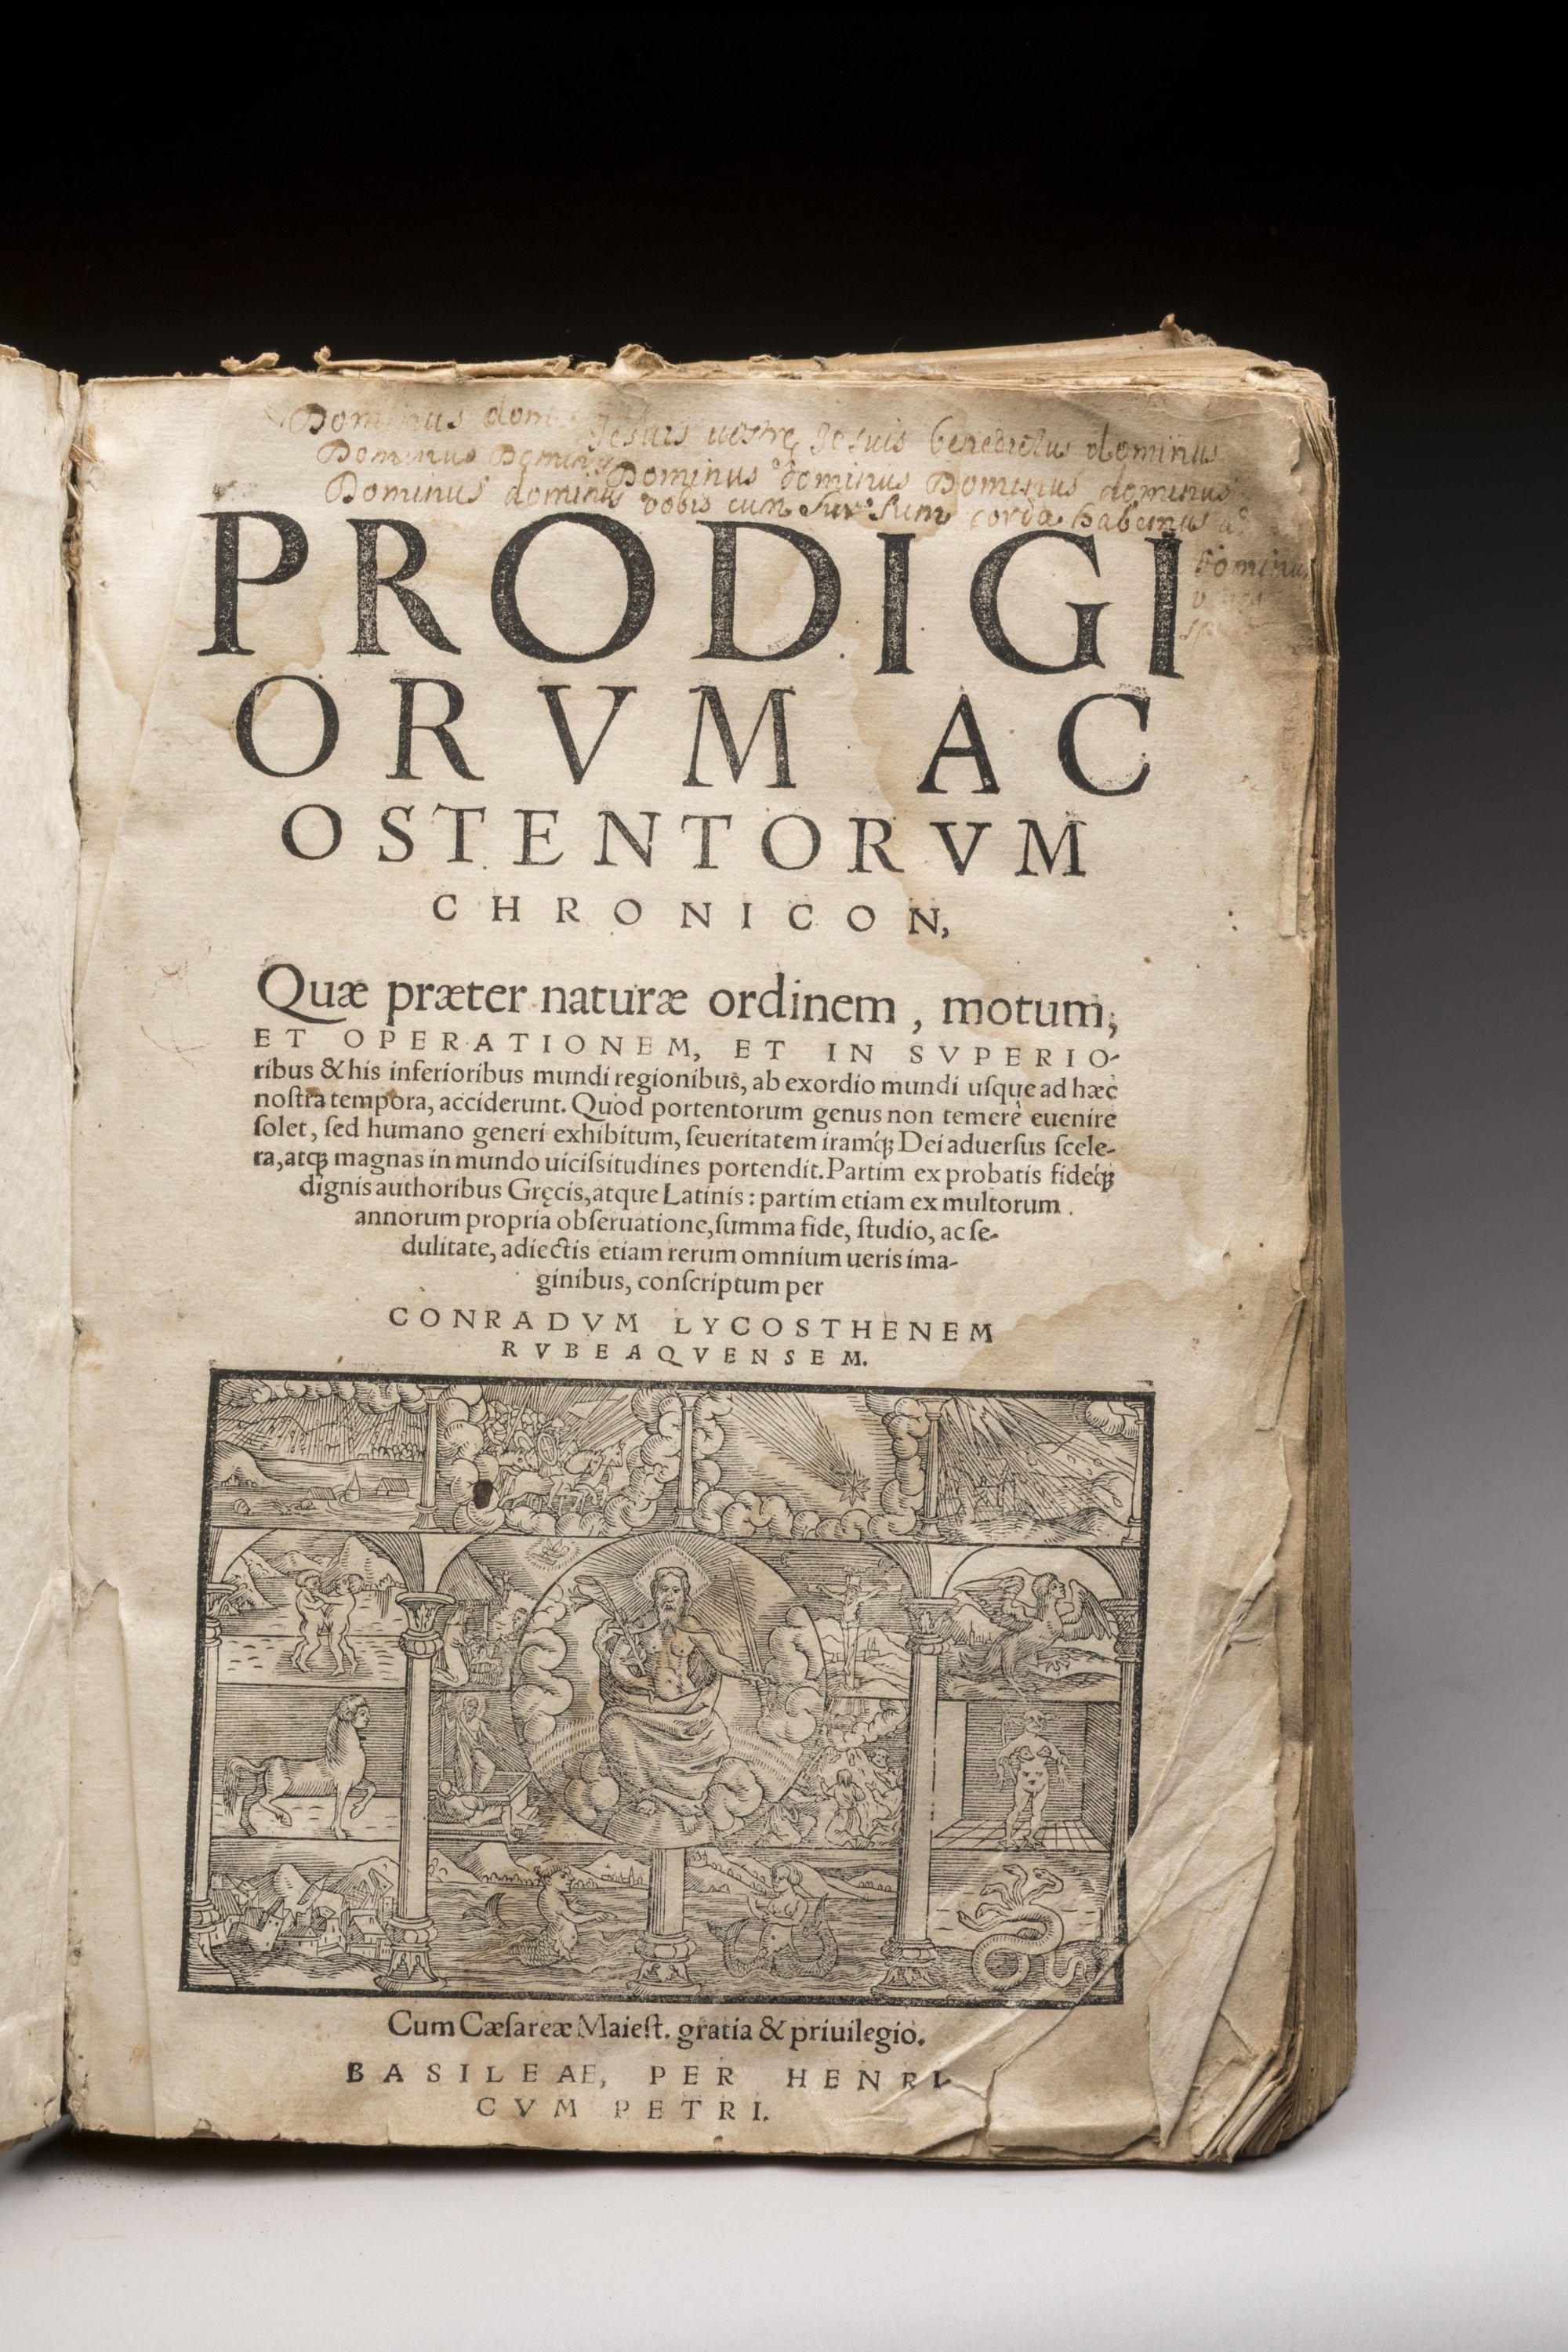 Dominus dom Jesuis uostre Jesuis benedictus dominus
Dominus Dominus Dominus dominus Dominus dominus
Dominus dominus vobis cum Sur Sum corda habemus
Dominus
PRODIGI
ORVM AC
OSTENTORVM
CHRONICON,
Quæ præter naturæ ordinem, motum,
ET OPERATIONEM, ET IN SVPERIO-
ribus & his inferioribus mundi regionibus, ab exordio mundi uſque ad hæc
noſtra tempora, acciderunt. Quod portentorum genus non temerè euenire
ſolet, ſed humano generi exhibitum, ſeueritatem iramq́; Dei aduerſus ſcele-
ra, atq; magnas in mundo uiciſsitudines portendit. Partim ex probatis fideq́;
dignis authoribus Gręcis, atque Latinis: partim etiam ex multorum
annorum propria obſeruatione, ſumma fide, ſtudio, ac ſe-
dulitate, adiectis etiam rerum omnium ueris ima-
ginibus, conſcriptum per
CONRADVM LYCOSTHENEM
RVBEAQVENSEM.
Cum Cæſareæ Maieſt. gratia & priuilegio.
BASILEAE, PER HENRI
CVM PETRI.